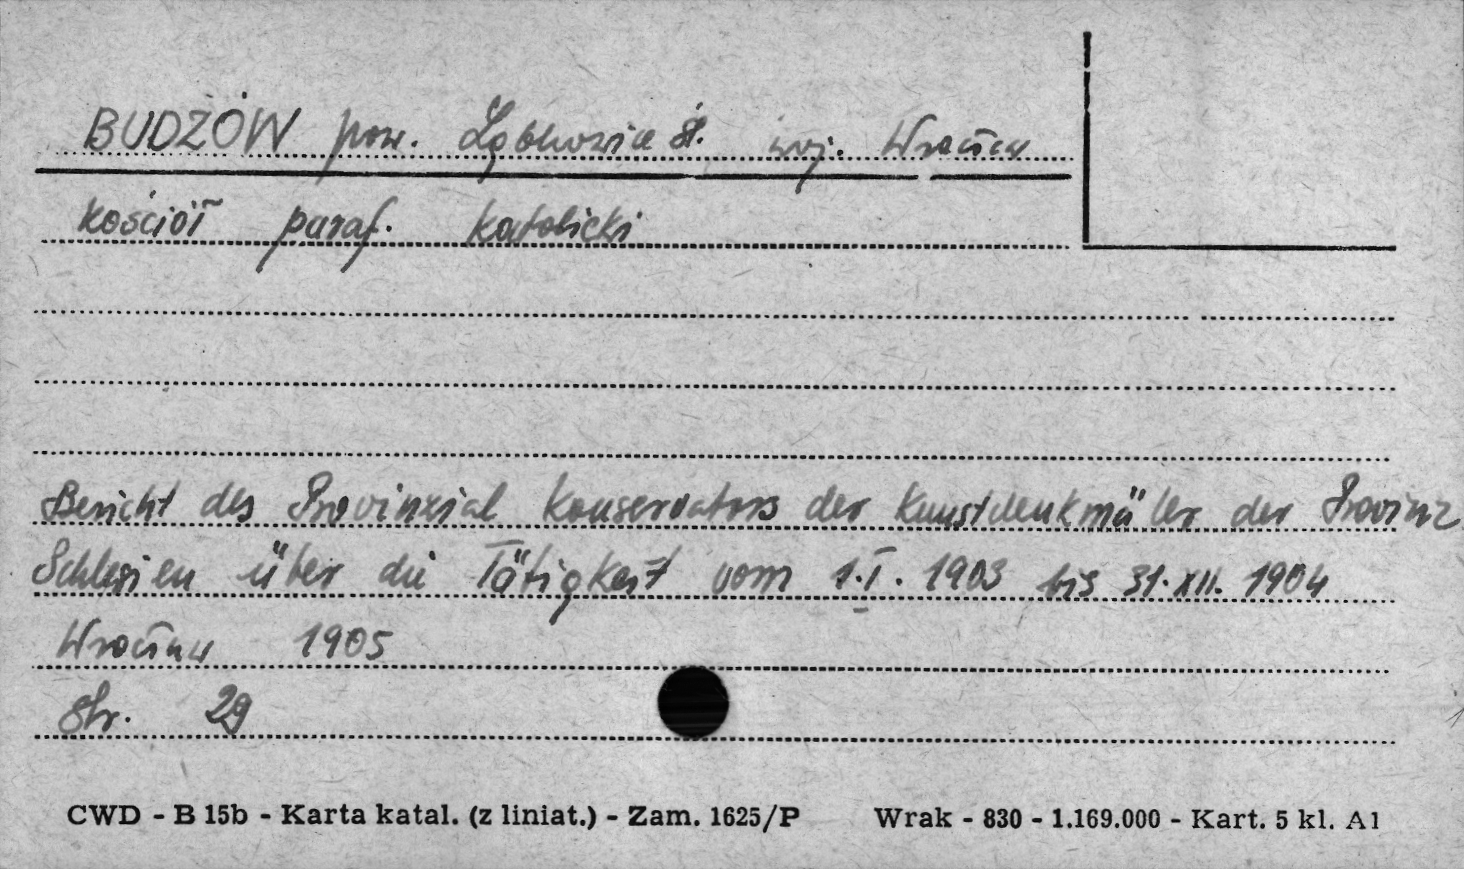 BUDZÓW pow. Ząbkowice śl. woj. Wrocław
kościół paraf. katolicki
Bericht des Provinzial Konservators der Kunstdenkmäler der Provinz
Schlesien über die Tätigkeit vom 1.I. 1903 bis 31.XII. 1904
Wrocław 1905
Str. 29
CWD - B 15b - Karta katal. (z liniat.) - Zam. 1625/P Wrak - 830 - 1.169.000 - Kart. 5 kl. A1